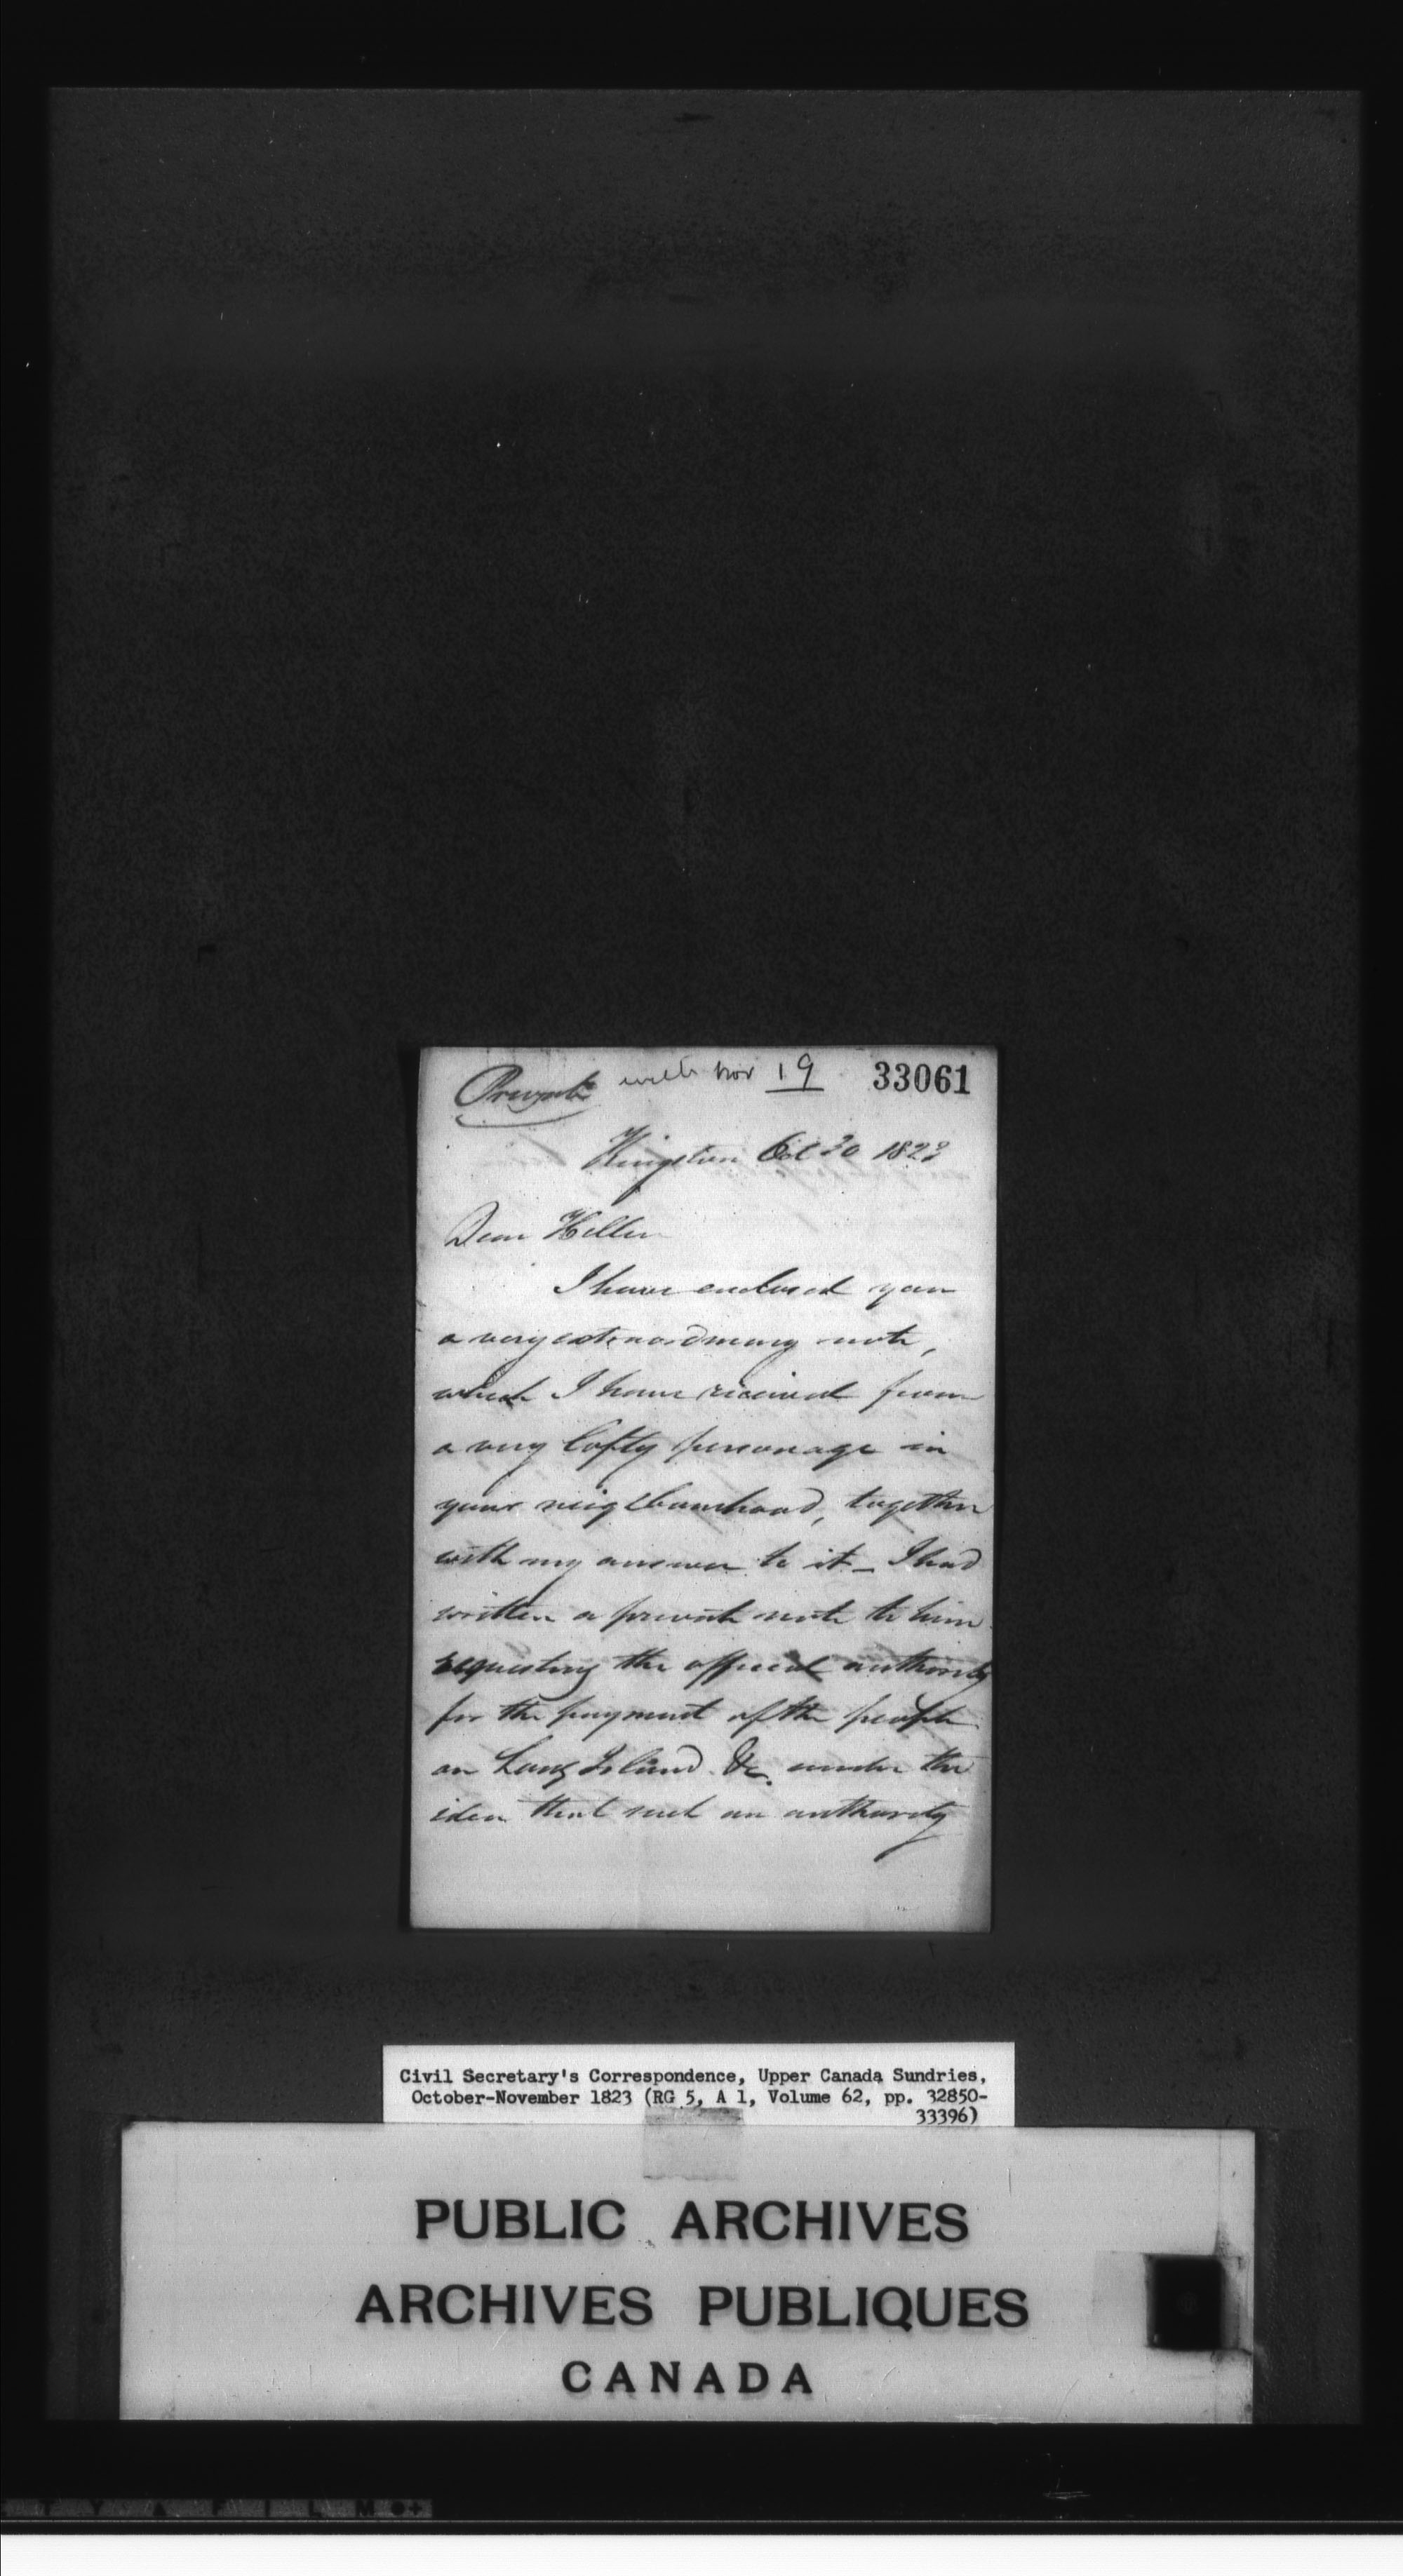 Private with Nov 19 33061
Kingston Oct 30 1823
Dear Hillier
I have enclosed you
a very extraordinary note,
which I have received from
a very lofty personage in
your neighbourhood, together
with my answer to it – I had
written a private note to him
requesting the official authority
for the payment of the people
on Long Island &c. under the
idea that such an authority
Civil Secretary's Correspondence, Upper Canada Sundries,
October-November 1823 (RG 5, A 1, Volume 62, pp. 32850-
33396)
PUBLIC ARCHIVES
ARCHIVES PUBLIQUES
CANADA